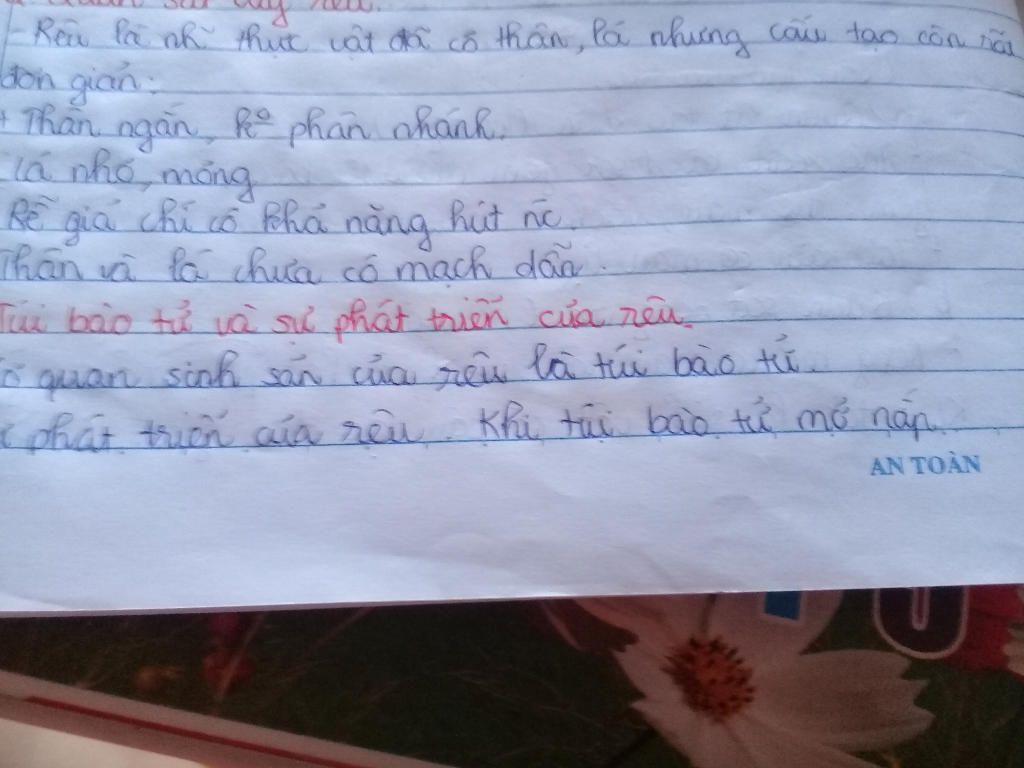 Quan sát cây rêu.
- Rêu là nh~ thực vật đã có thân, lá nhưng cấu tạo còn rất
đơn giản:
+ Thân ngắn, ko phân nhánh.
lá nhỏ, mỏng
Rễ giả chỉ có khả năng hút nc.
Thân và lá chưa có mạch dẫn.
Túi bào tử và sự phát triển của rêu.
quan sinh sản của rêu là túi bào tử.
phát triển của rêu. Khi túi bào tử mở nắp
AN TOÀN